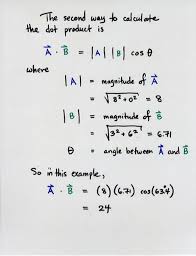 The second way to calculate
the dot product is
A⃗ · B⃗ = |A| |B| cos θ
where
|A| = magnitude of A⃗
= √(8² + 0²) = 8
|B| = magnitude of B⃗
= √(3² + 6²) = 6.71
θ = angle between A⃗ and B⃗
So in this example,
A⃗ · B⃗ = (8)(6.71) cos(63.4)
= 24